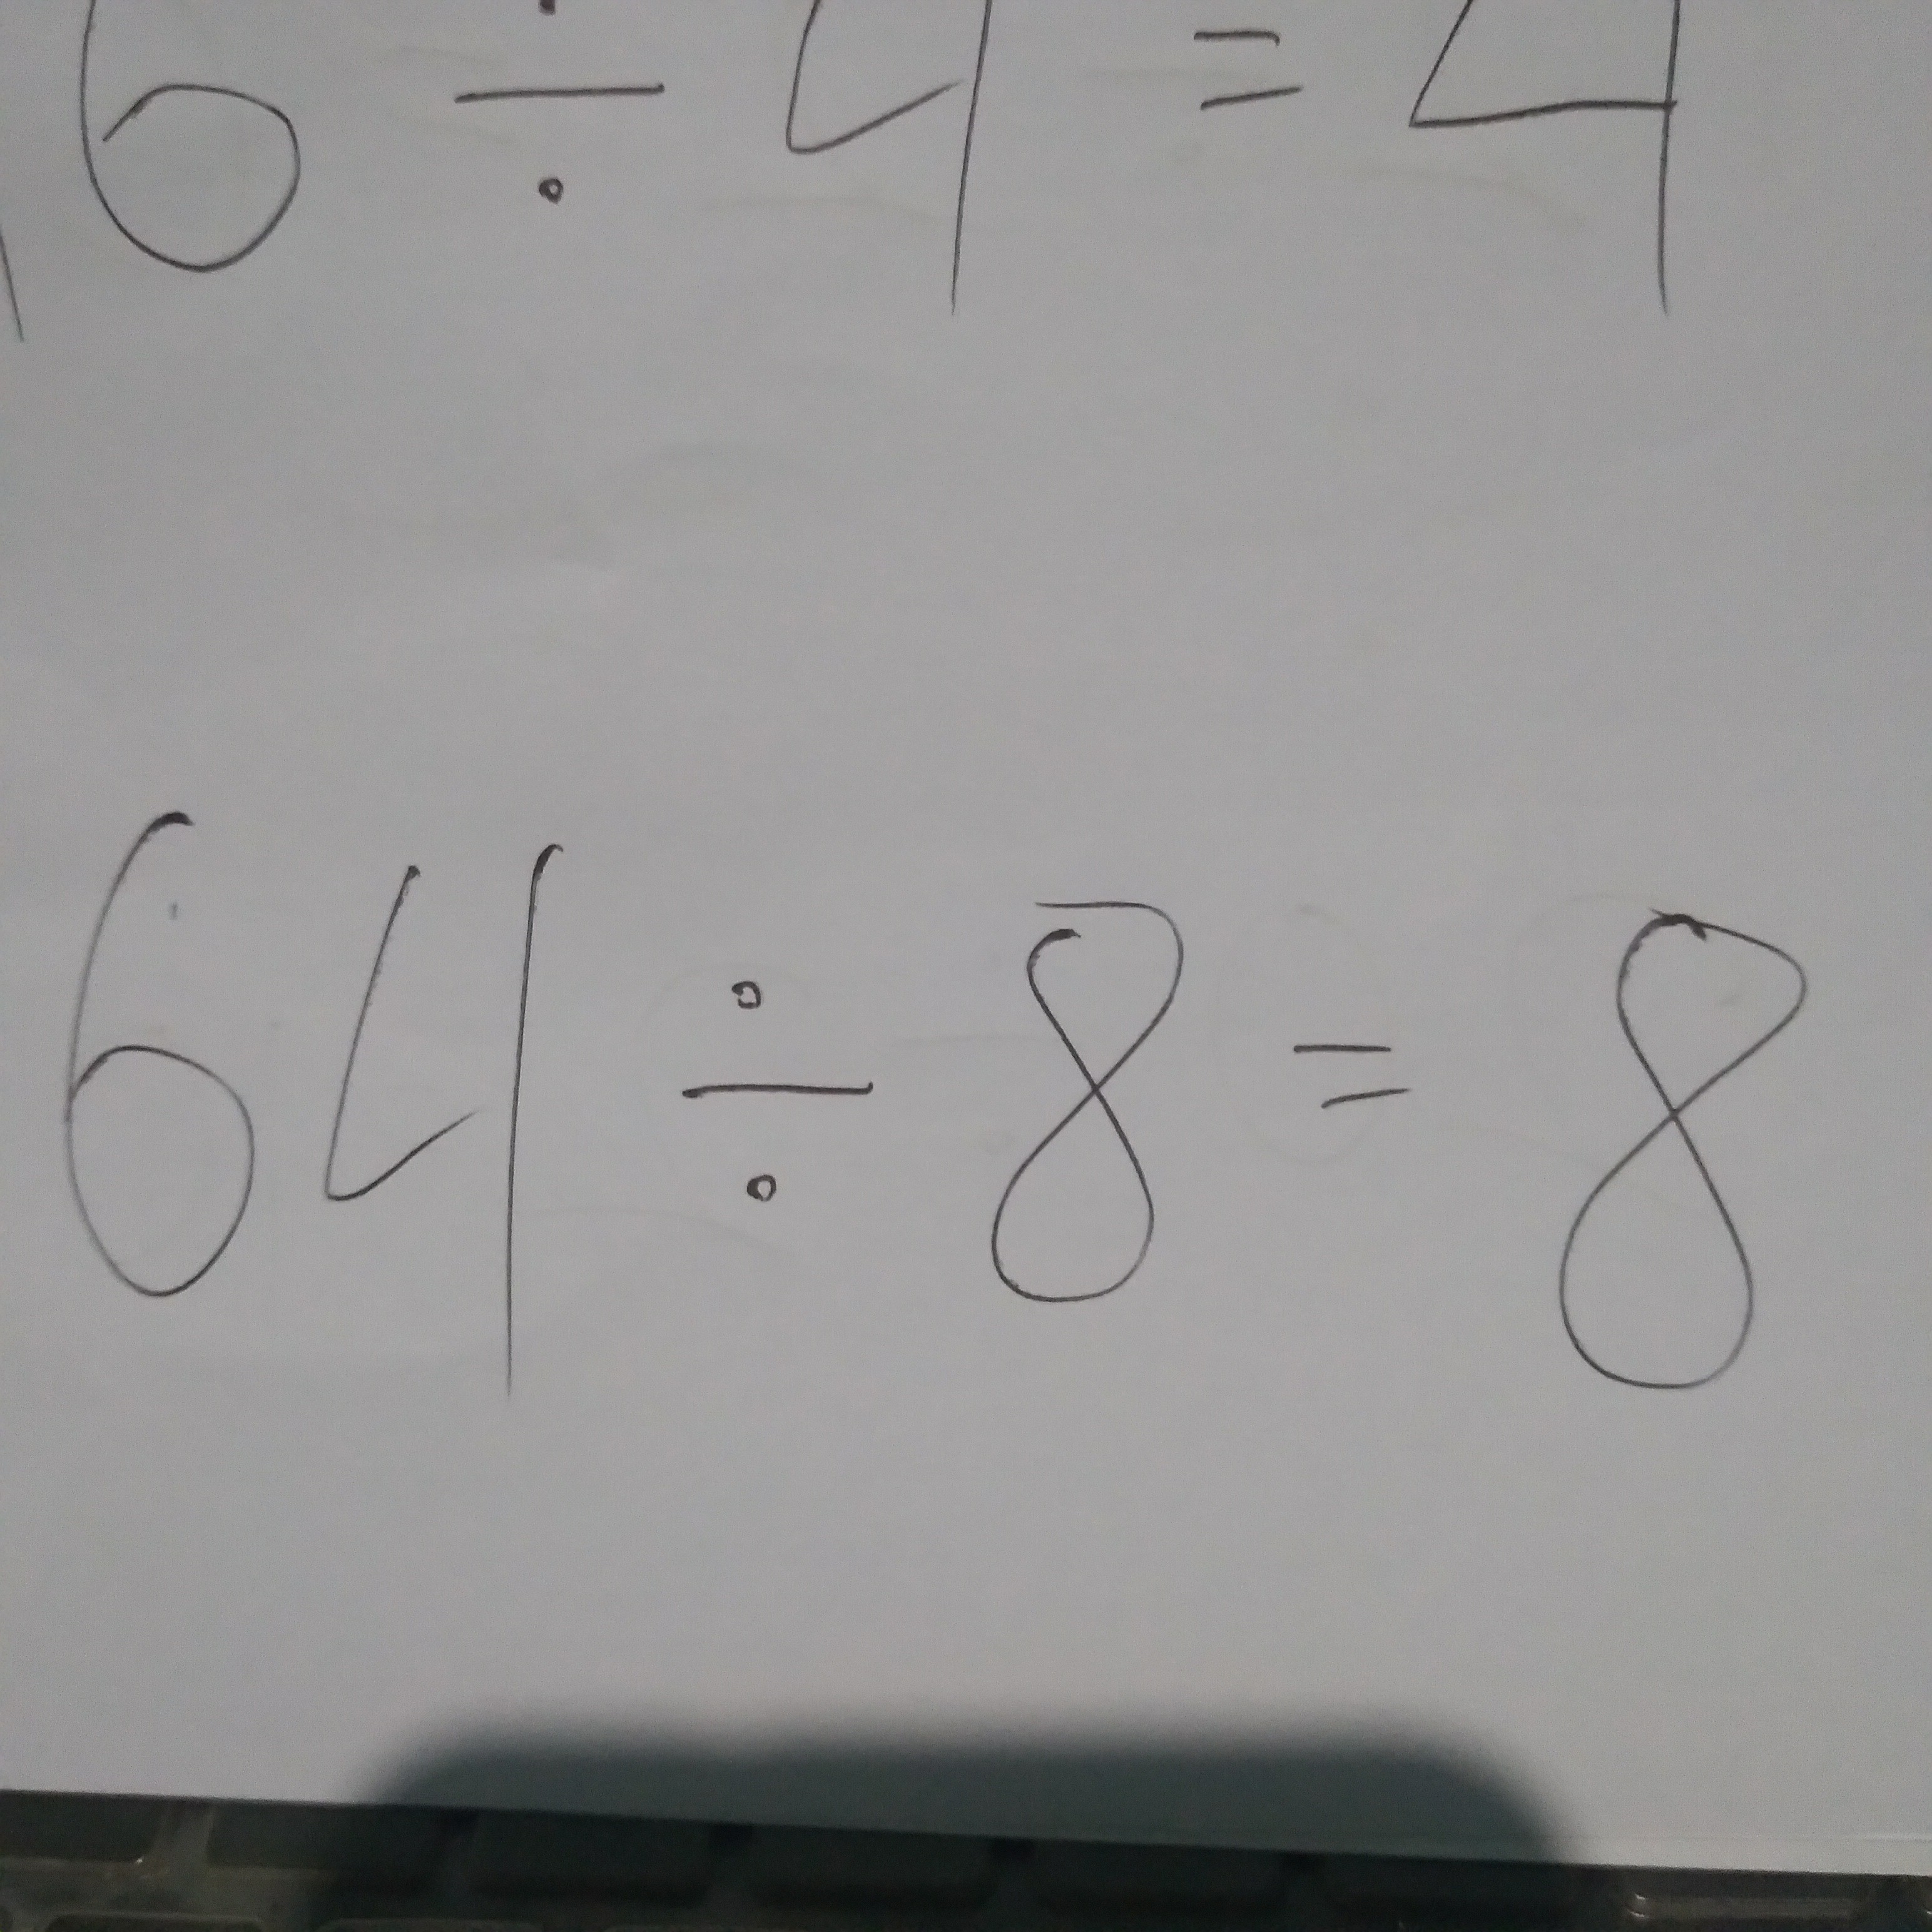 16 ÷ 4 = 4
64 ÷ 8 = 8